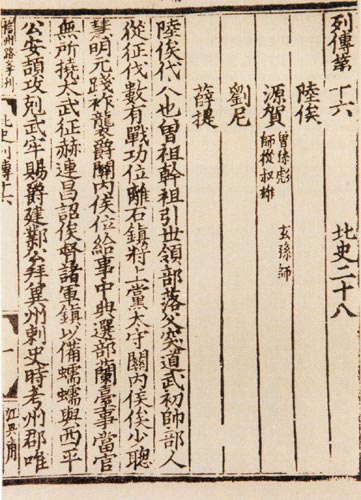 列傳第十六 北史二十八
陸俟
源賀 曾孫彪 玄孫師
師從叔雄
劉尼
薛提
陸俟代人也曾祖幹祖引世領部落父突道武初師部人
從征伐數有戰功位離石鎮將上黨太守關內侯俟少聰
慧明元踐祚襲爵關內侯位給事中典選部蘭臺事當官
無所撓太武征赫連昌詔俟督諸軍鎮以備蠕蠕與西平
公安頡攻剋武牢賜爵建鄴公拜冀州刺史時考州郡唯
信州路 刊 北史列傳十六